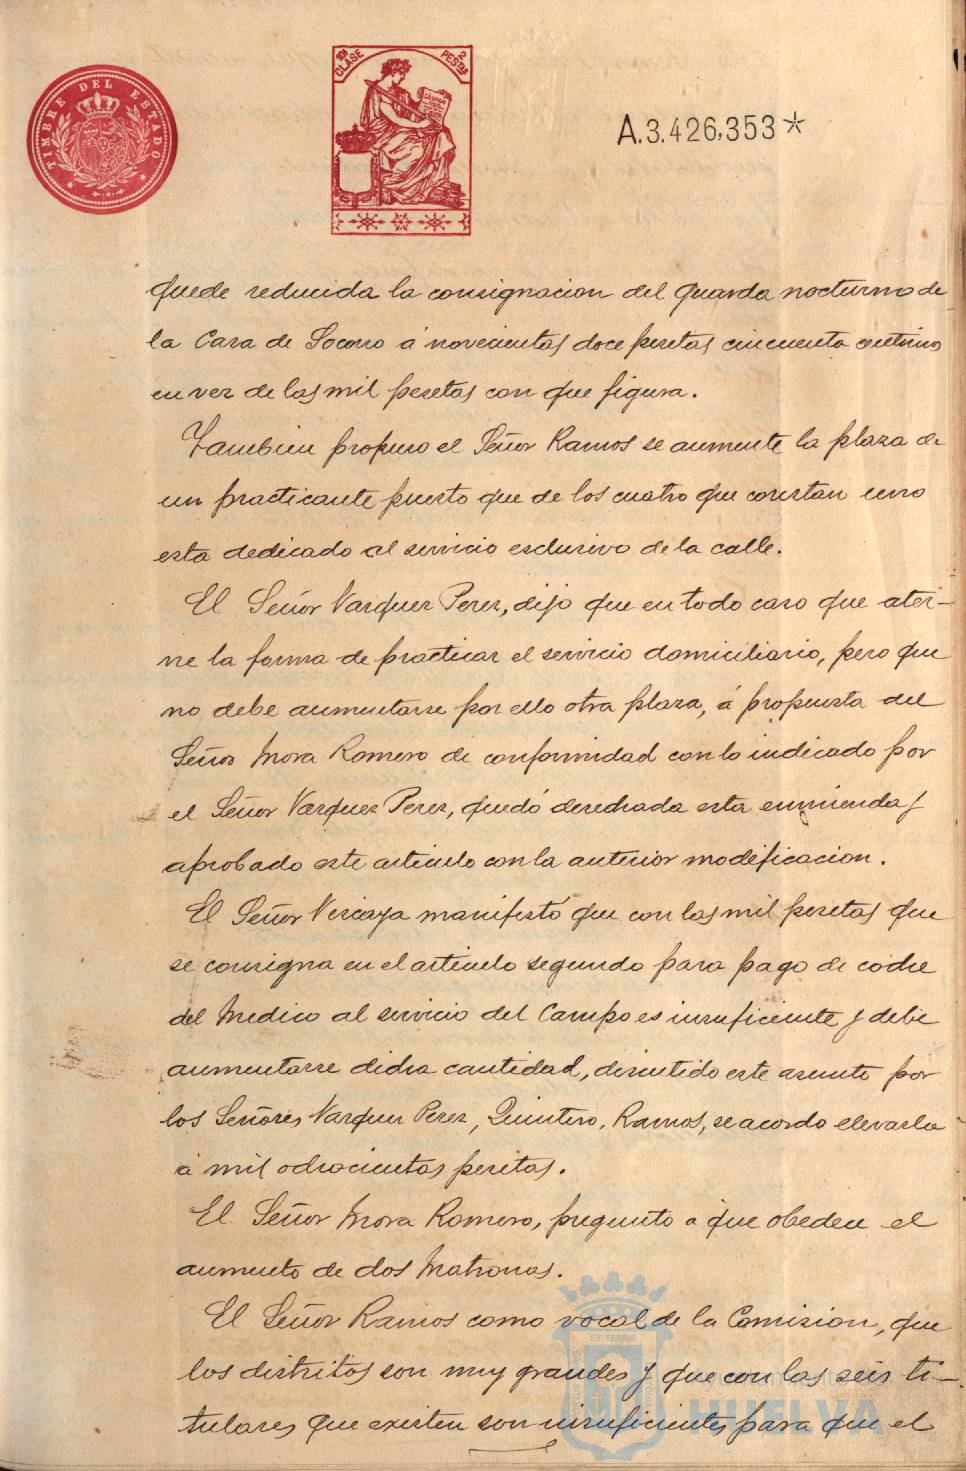 TIMBRE DEL ESTADO
10ª CLASE 2 PESTAS
A.3.426,353*
quede reducida la consignacion del guarda nocturno de
la Casa de Socorro á novecientas doce pesetas cincuenta centimos
en vez de las mil pesetas con que figura.
Tambien propuso el Señor Ramos se aumente la plaza de
un practicante puesto que de los cuatro que constan uno
esta dedicado al servicio esclusivo de la calle.
El Señor Vazquez Perez, dijo que en todo caso que ater-
ne la forma de practicar el servicio domiciliario, pero que
no debe aumentarse por ello otra plaza, á propuesta del
Señor Mora Romero de conformidad con lo indicado por
el Señor Vazquez Perez, quedó desechada esta enmienda y
aprobado este articulo con la anterior modificacion.
El Señor Vizcaya manifestó que con las mil pesetas que
se consigna en el articulo segundo para pago de coche
del Medico al servicio del Campo es insuficiente y debe
aumentarse dicha cantidad, discutido este asunto por
los Señores Vazquez Perez, Quintero, Ramos, se acordo elevarla
á mil ochocientas pesetas.
El Señor Mora Romero, pregunto a que obedece el
aumento de dos Matronas.
El Señor Ramos como vocal de la Comision, que
los distritos son muy grandes y que con las seis ti-
tulares que existen son insuficientes para que el
HUELVA